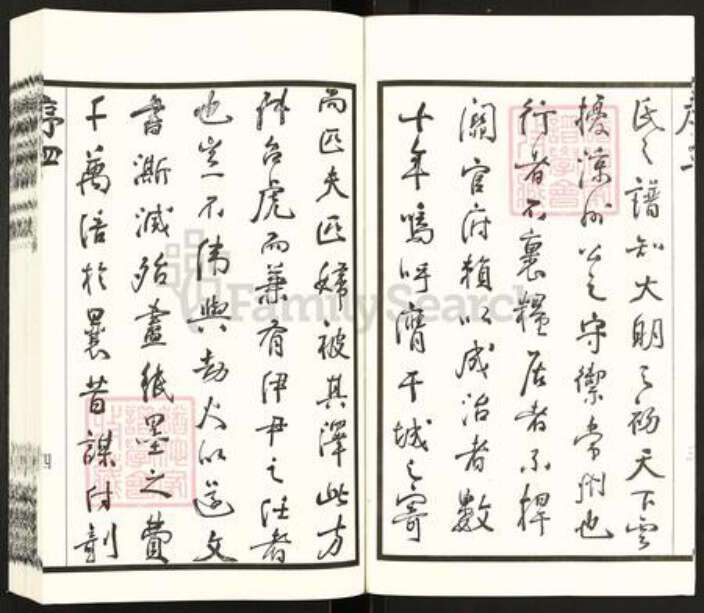 氏之譜知大明之初天下雲
擾涼州公之守禦常州也
行者不裹糧居者不捍
關官府賴以成治者數
十年嗚呼膺干城之寄
而匹夫匹婦被其澤此方
叔召虎而兼有伊尹之任者
也豈不偉與劫火以還文
書澌滅殆盡紙墨之費
千萬倍於曩昔謀付剞
序四
四
FamilySearch